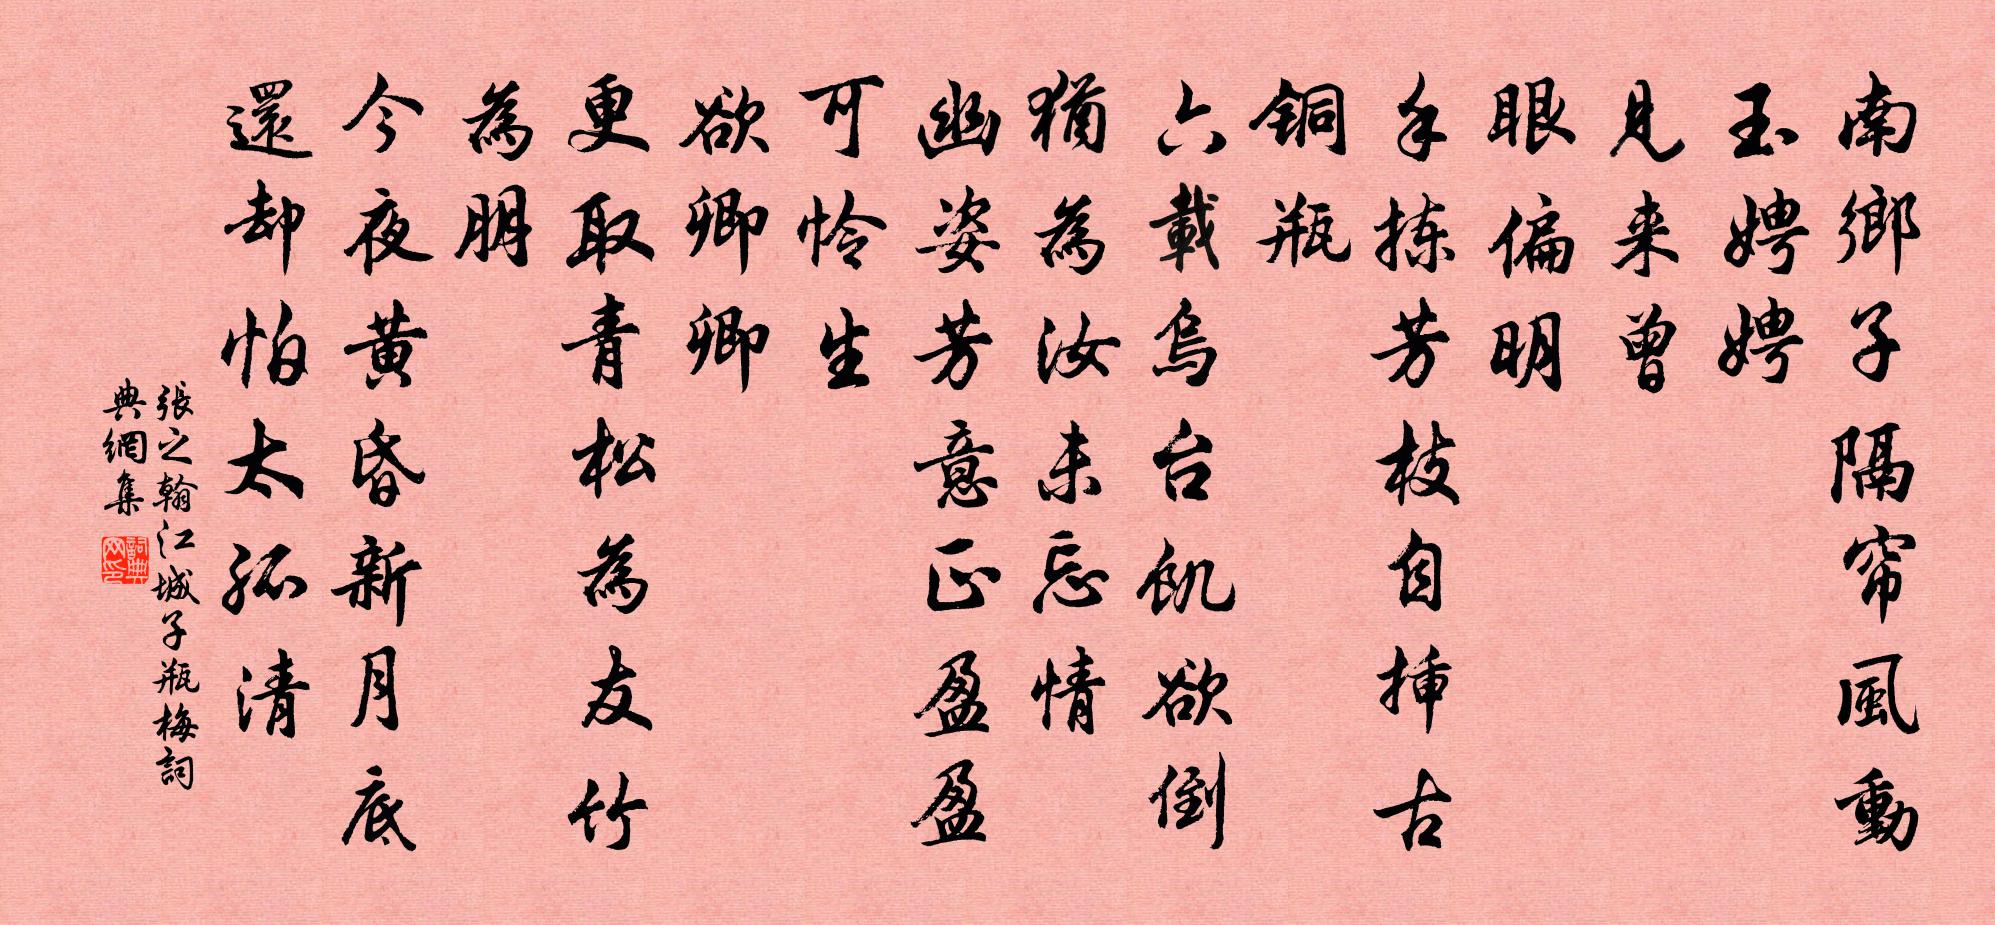 南鄉子隔帘風動
玉娉娉
見来曾
眼偏明
手拣芳枝自揷古
铜瓶
六載烏台飢欲倒
猶為汝未忘情
幽姿芳意正盈盈
可怜生
欲卿卿
更取青松為友竹
為朋
今夜黄昏新月底
還却怕太孤清
張之翰江城子瓶梅詞
典網集
詞典
网印